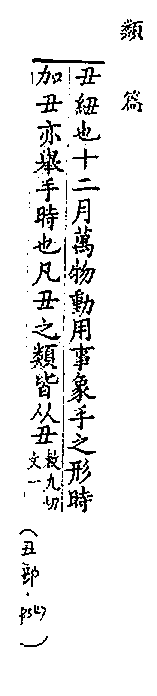 類篇
丑紐也十二月萬物動用事象手之形時
加丑亦舉手時也凡丑之類皆从丑敕九切
文一
(丑部·p547)